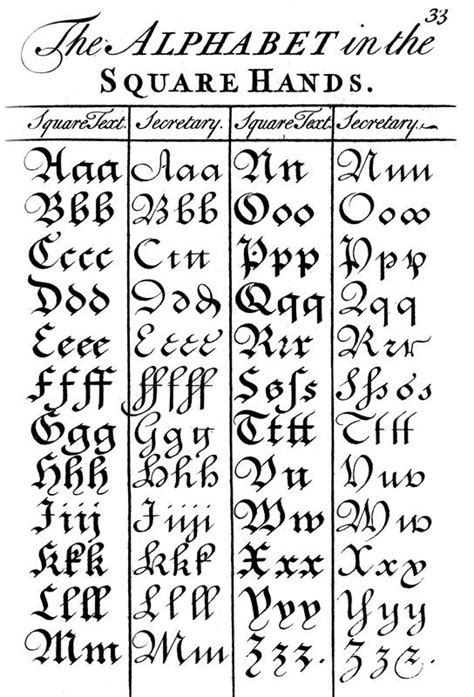 33
The ALPHABET in the
SQUARE HANDS.
Square Text. Secretary. Square Text Secretary.
Aaa Aaa Nn Nnn
Bbb Bbb Ooo Ooo
Cccc Cccc Pppp Ppp
Ddd Ddd Qqq Qqq
Eeee Eeeee Rrrr Rrrr
Ffff ffffff Ssſs Sſsss
Ggg Gggg Tttt Tttt
Hhh Hhhh Vu Vuv
Iiij Iiiji Ww Ww
Kkk Kkkk Xxx Xxx
Llll Llll Yyy Yyy
Mm Mm Zzz. Zzz.